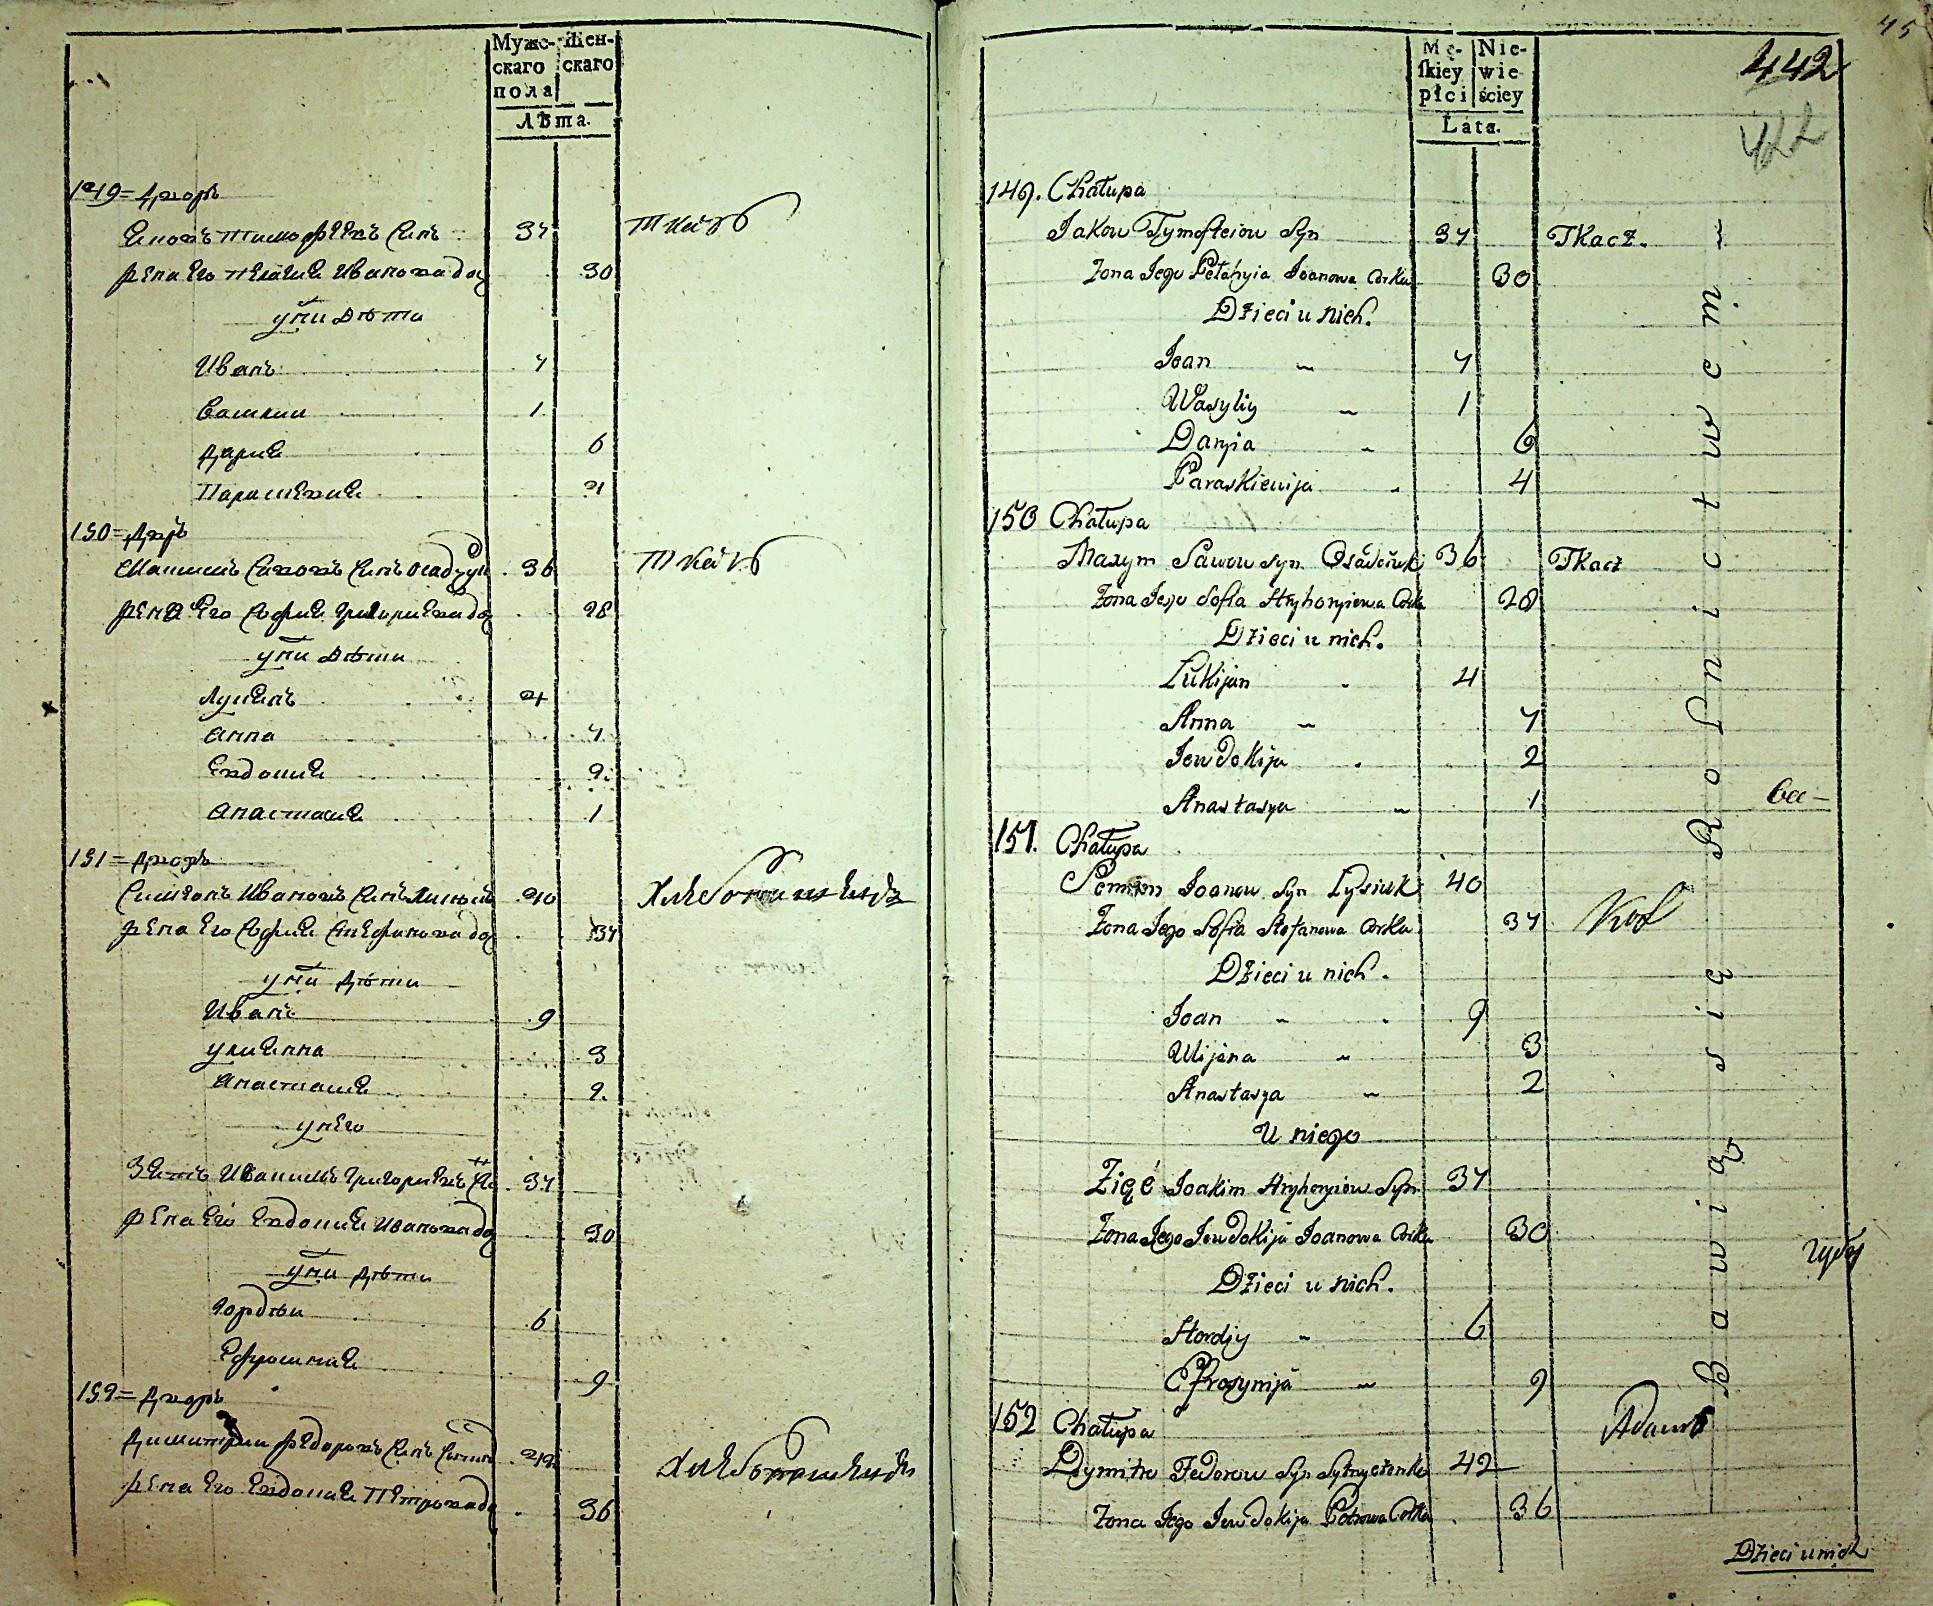 Муже-
скаго
пола
Жен-
скаго
Лѣта.
149 = Дворъ
Тимофѣевъ Синъ 37 Ткачъ
жена его Пелагия Иванова доч 30
у нихъ дѣти
Иванъ 7
Василий 1
Дария 6
Параскевия 4
150 = Дворъ
Максимъ Савовъ Синъ Осадчук 36 Ткачъ
жена его София Григориева доч 28
у нихъ дѣти
Лукиянъ 4
Анна 7
Евдокия 2
Анастасия 1
151 = Дворъ
Симеонъ Ивановъ Синъ 40 Хлебопашецъ
жена его София Стефанова доч 37
у нихъ дѣти
Иванъ 9
Улиянна 3
Анастасия 2
у него
Зять Иоакимъ Григориевъ 37
жена его Евдокия Иванова доч 30
у нихъ дѣти
Гордѣй 6
Ефросиния 9
152 = Дворъ
Димитрий Федоровъ Синъ 42 Хлебопашецъ
жена его Евдокия Петрова доч 36
45
Mę-
ſkiey
płci
Nie-
wie-
ściey
Lata.
442
422
149. Chałupa
Jakow Tymofteiow Syn 37 Tkacz.
Zona Jego Pełahyia Joanowa Corka 30
Dzieci u nich.
Joan 7
Wasyliy 1
Daryia 6
Paraskiewija 4
150 Chałupa
Maxym Sawow Syn Osadczuk 36 Tkacz
Zona Jego Sofia Hryhoryiewa Corka 28
Dzieci u nich.
Łukijan 4
Anna 7
Jewdokija 2
Anastasya 1
151. Chałupa
Semion Joanow Syn Łysiuk 40
Zona Jego Sofia Stefanowa Corka 37
Dzieci u nich.
Joan 9
Ulijana 3
Anastasya 2
U niego
Zięć Joakim Hryhoryiow Syn 37
Zona Jego Jewdokija Joanowa Corka 30
Dzieci u nich.
Hordiy 6
Efrosynija 9
152 Chałupa
Dymitr Fedorow Syn 42
Zona Jego Jewdokija Petrowa Corka 36
Bawią się Rolnictwem
Dzieci u nich